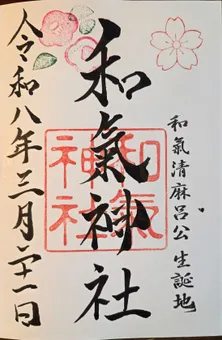 和氣清麻呂公生誕地
和氣神社
和氣神社
令和八年三月二十一日